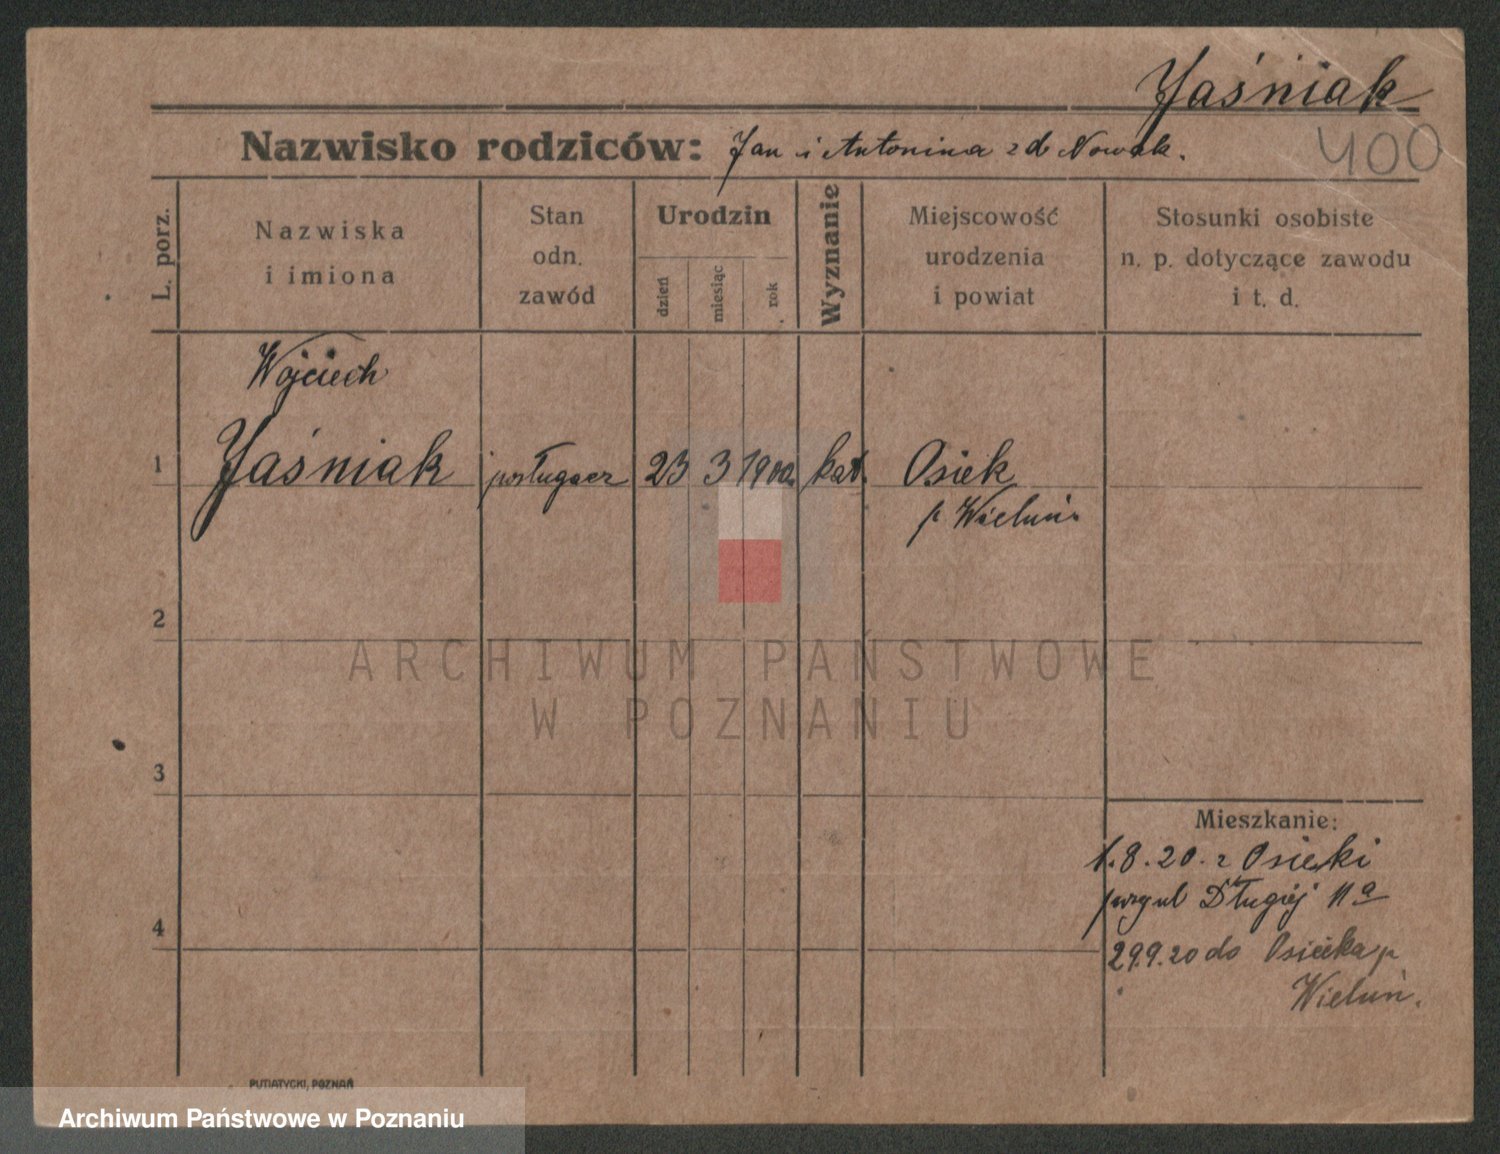 Jaśniak
Nazwisko rodziców: Jan i Antonina z d Nowak.
400
L. porz.
Nazwiska
i imiona
Stan
odn.
zawód
Urodzin
dzień
miesiąc
rok
Wyznanie
Miejscowość
urodzenia
i powiat
Stosunki osobiste
n. p. dotyczące zawodu
i t. d.
Wojciech
1 Jaśniak posługacz 23 3 1900. kat. Osiek
p Wieluń.
2
3
4
ARCHIWUM PAŃSTWOWE
W POZNANIU
Mieszkanie:
1.8.20. z Osieki
przy ul Długiej 11a
29.9.20 do Osieka p
Wieluń.
PUTIATYCKI, POZNAŃ
Archiwum Państwowe w Poznaniu